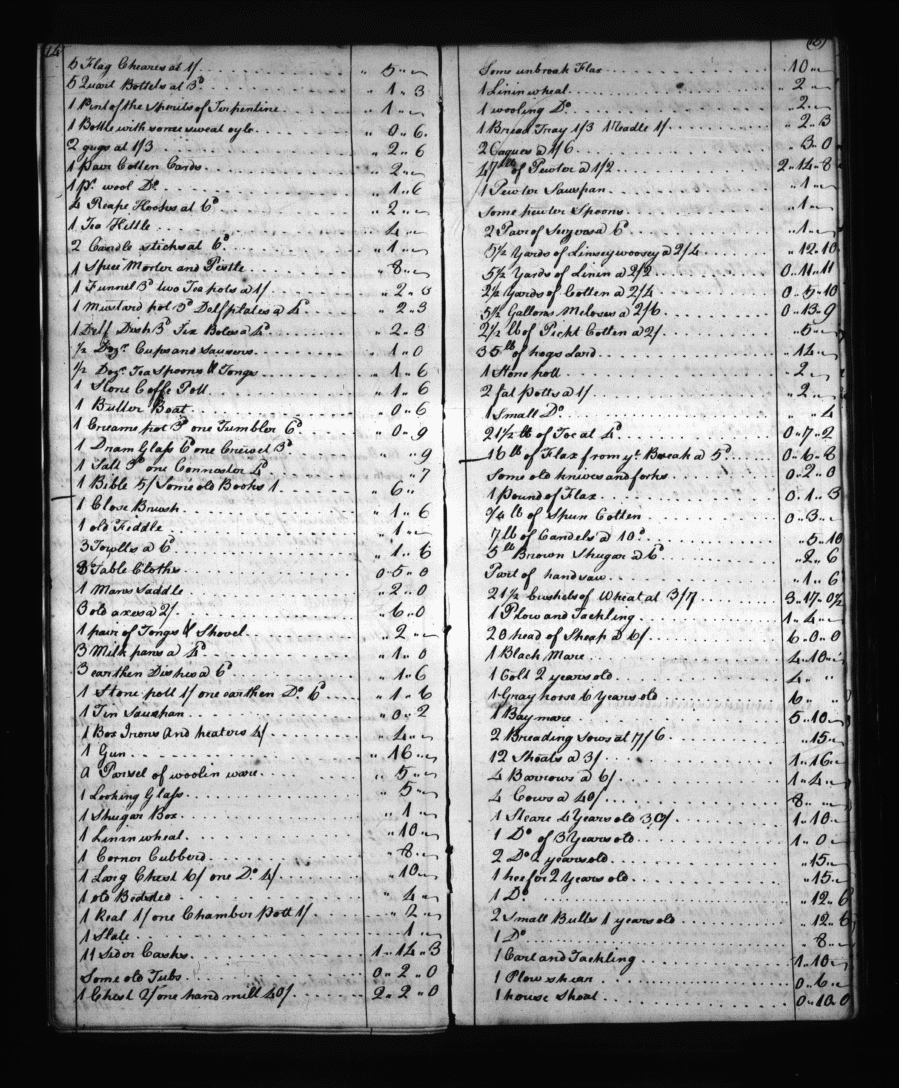 14
5 Flag Cheares at 1/ " 5 "
5 Quart Bottels at 3d " 1 " 3
1 Pint of the Spirits of Turpentine " 1 "
1 Bottle with some sweat oyle " 0 " 6
2 gugs at 1/3 " 2 " 6
1 pair Cotten Cards " 2 "
1 pr wool Do " 1 " 6
4 Reape Hooks at 6d " 2 "
1 Tea Kittle " 4 "
2 Candle sticks at 6d " 1 "
1 Spice Morter and Pestle " 8 "
1 Funnel 3d two Tea pots a 1/ " 2 " 3
1 Mustard pot 3d Delf plates a 4d " 2 " 3
1 Delf Dish 3d Six Boles a 4d " 2 " 3
1/2 Dozn Cups and Sausers " 1 " 0
1/2 Dozn Tea Spoons & Tongs " 1 " 6
1 Stone Coffe Pott " 1 " 6
1 Butter Boat " 0 " 6
1 Creame pot 3d one Tumbler 6d " 0 " 9
1 Dram Glass 6d one Creuet 3d " " 9
1 Salt 3d one Connaster 4d " " 7
1 Bible 5/ Some old Books 1 " 6 "
1 Close Brush " 1 " 6
1 old Fiddle " 1 "
3 Towlls a 6d " 1 " 6
3 Table Cloths 0 " 5 " 0
1 Mans Saddle " 2 " 0
3 old axes a 2/ " 6 " 0
1 pair of Tongs & Shovel " 2 "
3 Milk pans a 4d " 1 " 0
3 earthen Dishes a 6d " 1 " 6
1 Stone pott 1/ one earthen Do 6d " 1 " 6
1 Tin Saushan " 0 " 2
1 Box Irons and heaters 4/ " 4 "
1 Gun " 16 "
a Parsel of woolin ware " 5 "
1 Looking Glass " 5 "
1 Shugar Box " 1 "
1 Linin wheal " 10 "
1 Cornor Cubberd " 8 "
1 Larg Chest 6/ one Do 4/ " 10 "
1 old Bedsted " 4 "
1 Real 1/ one Chamber Pott 1/ " 2 "
1 Slate " 1 "
11 Sider Casks 1 " 14 " 3
Some old Tubs 0 " 2 " 0
1 Chest 2/ one hand mill 40/ 2 " 2 " 0
15
Some unbroak Flax " 10 "
1 Linin wheal " 2 "
1 wooling Do " 2 "
1 Bread Tray 1/3 1 Ladle 1/ " 2 " 3
2 Cagues a 1/6 " 3 " 0
47 lb of Pewter a 1/2 2 " 14 " 8
1 Pewter Sawspan " 1 "
Some pewter Spoons " 1 "
2 Pair of Sizyors a 6d " 1 "
5 1/2 Yards of Linsey woosey a 2/4 " 12 " 10
5 1/2 Yards of Linin a 2/2 0 " 11 " 11
2 1/2 Yards of Cotten a 2/4 0 " 5 " 10
5 1/2 Gallons Meloses a 2/6 0 " 13 " 9
2 1/2 lb of Pickt Cotten a 2/ " 5 "
35 lb of hogs Lard " 14 "
1 Stone pott " 2 "
2 fat Potts a 1/ " 2 "
1 Small Do " " 4
21 1/2 lb of Toe at 4d 0 " 7 " 2
16 lb of Flax from yt Break a 5d 0 " 6 " 8
Some old knives and forks 0 " 2 " 0
1 Pound of Flax 0 " 1 " 3
3/4 lb of Spun Cotten 0 " 3 "
7 lb of Candels a 10d " 5 " 10
5 lb Brown Shugar a 6d " 2 " 6
Part of handsaw " 1 " 6
21 1/2 bushels of Wheat at 3/7 3 " 17 " 0 1/2
1 Plow and Tackling 1 " 4 "
20 head of Sheap a 6/ 6 " 0 " 0
1 Black Mare 4 " 10 "
1 Colt 2 years old 4 " "
1 Gray horse 6 years old 6 " "
1 Bay mare 5 " 10 "
2 Breading Sows at 7/6 " 15 "
12 Shoats a 3/ 1 " 16 "
4 Barrows a 6/ 1 " 4 "
4 Cows a 40/ 8 " "
1 Steare 4 Years old 30/ 1 " 10 "
1 Do of 3 Years old 1 " 0 "
2 Do 2 years old " 15 "
1 heefor 2 Years old " 15 "
1 Do " 12 " 6
2 Small Bulls 1 years old " 12 " 6
1 Do " 8 "
1 Cart and Tackling 1 " 10 "
1 Plow shear 0 " 6 "
1 house Shoat 0 " 10 " 0